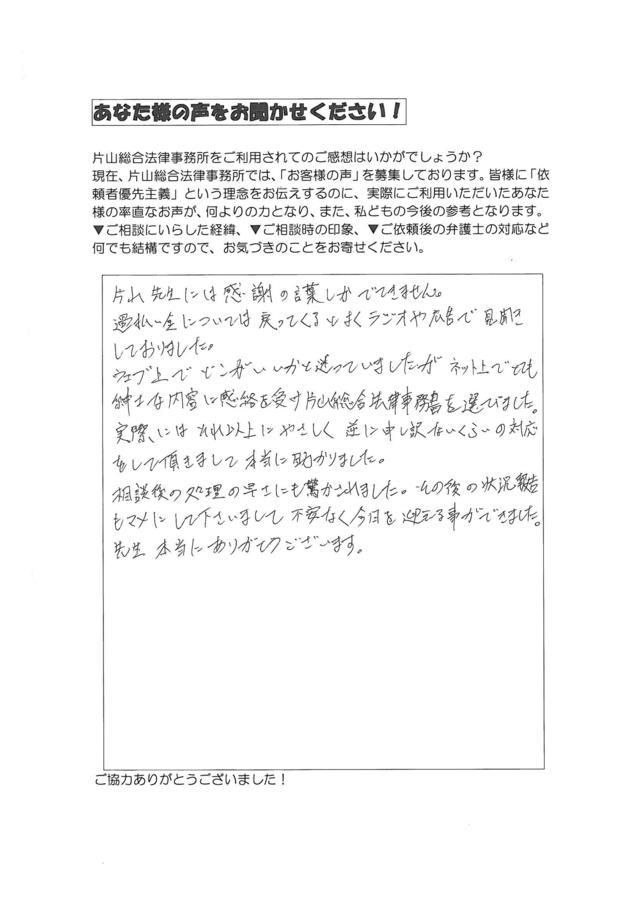 あなた様の声をお聞かせください！
片山総合法律事務所をご利用されてのご感想はいかがでしょうか？
現在、片山総合法律事務所では、「お客様の声」を募集しております。皆様に「依
頼者優先主義」という理念をお伝えするのに、実際にご利用いただいたあなた
様の率直なお声が、何よりの力となり、また、私どもの今後の参考となります。
▼ご相談にいらした経緯、▼ご相談時の印象、▼ご依頼後の弁護士の対応など
何でも結構ですので、お気づきのことをお寄せください。
片山先生には感謝の言葉しかでてきません。
過払い金については戻ってくるとよくラジオや広告で見聞き
しておりました。
ウェブ上でどこがいいかと迷っていましたがネット上でとても
紳士な内容に感銘を受け片山総合法律事務所を選びました。
実際、にはそれ以上にやさしく逆に申し訳ないくらいの対応
をして頂きまして本当に助かりました。
相談後の処理の早さにも驚かされました。その後の状況報告
もマメにして下さいまして不安なく今日を迎える事ができました。
先生本当にありがとうございます。
ご協力ありがとうございました！